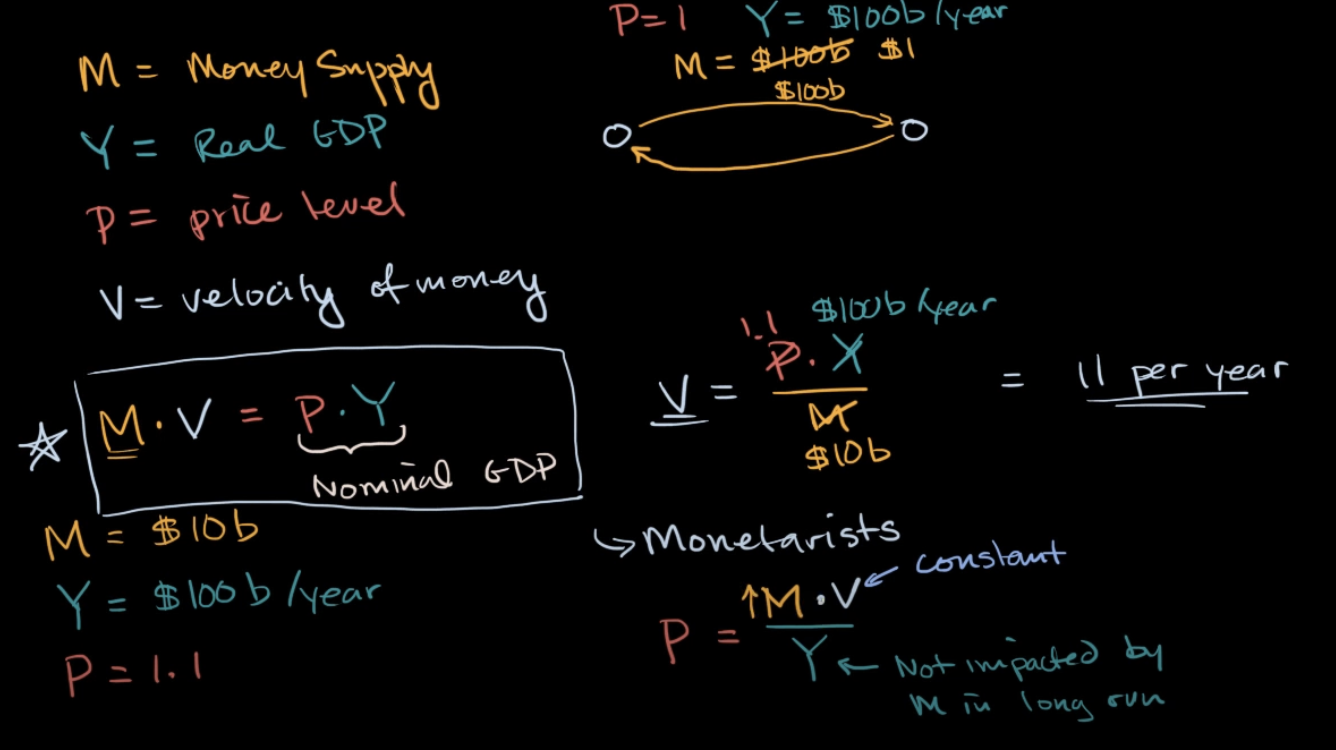 P = 1 Y = $100b/year
M = Money Supply
M = $100b $1
$100b
Y = Real GDP
P = price level
V = velocity of money
$100b/year
1.1
V = P · Y = 11 per year
M
$10b
M · V = P · Y
Nominal GDP
M = $10b
Y = $100b/year
P = 1.1
↳ Monetarists
constant
P = ↑M · V
Y ← Not impacted by
M in long run